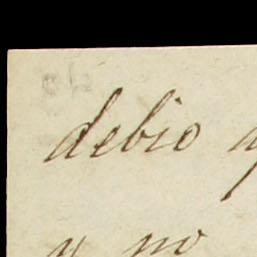 debio
y no